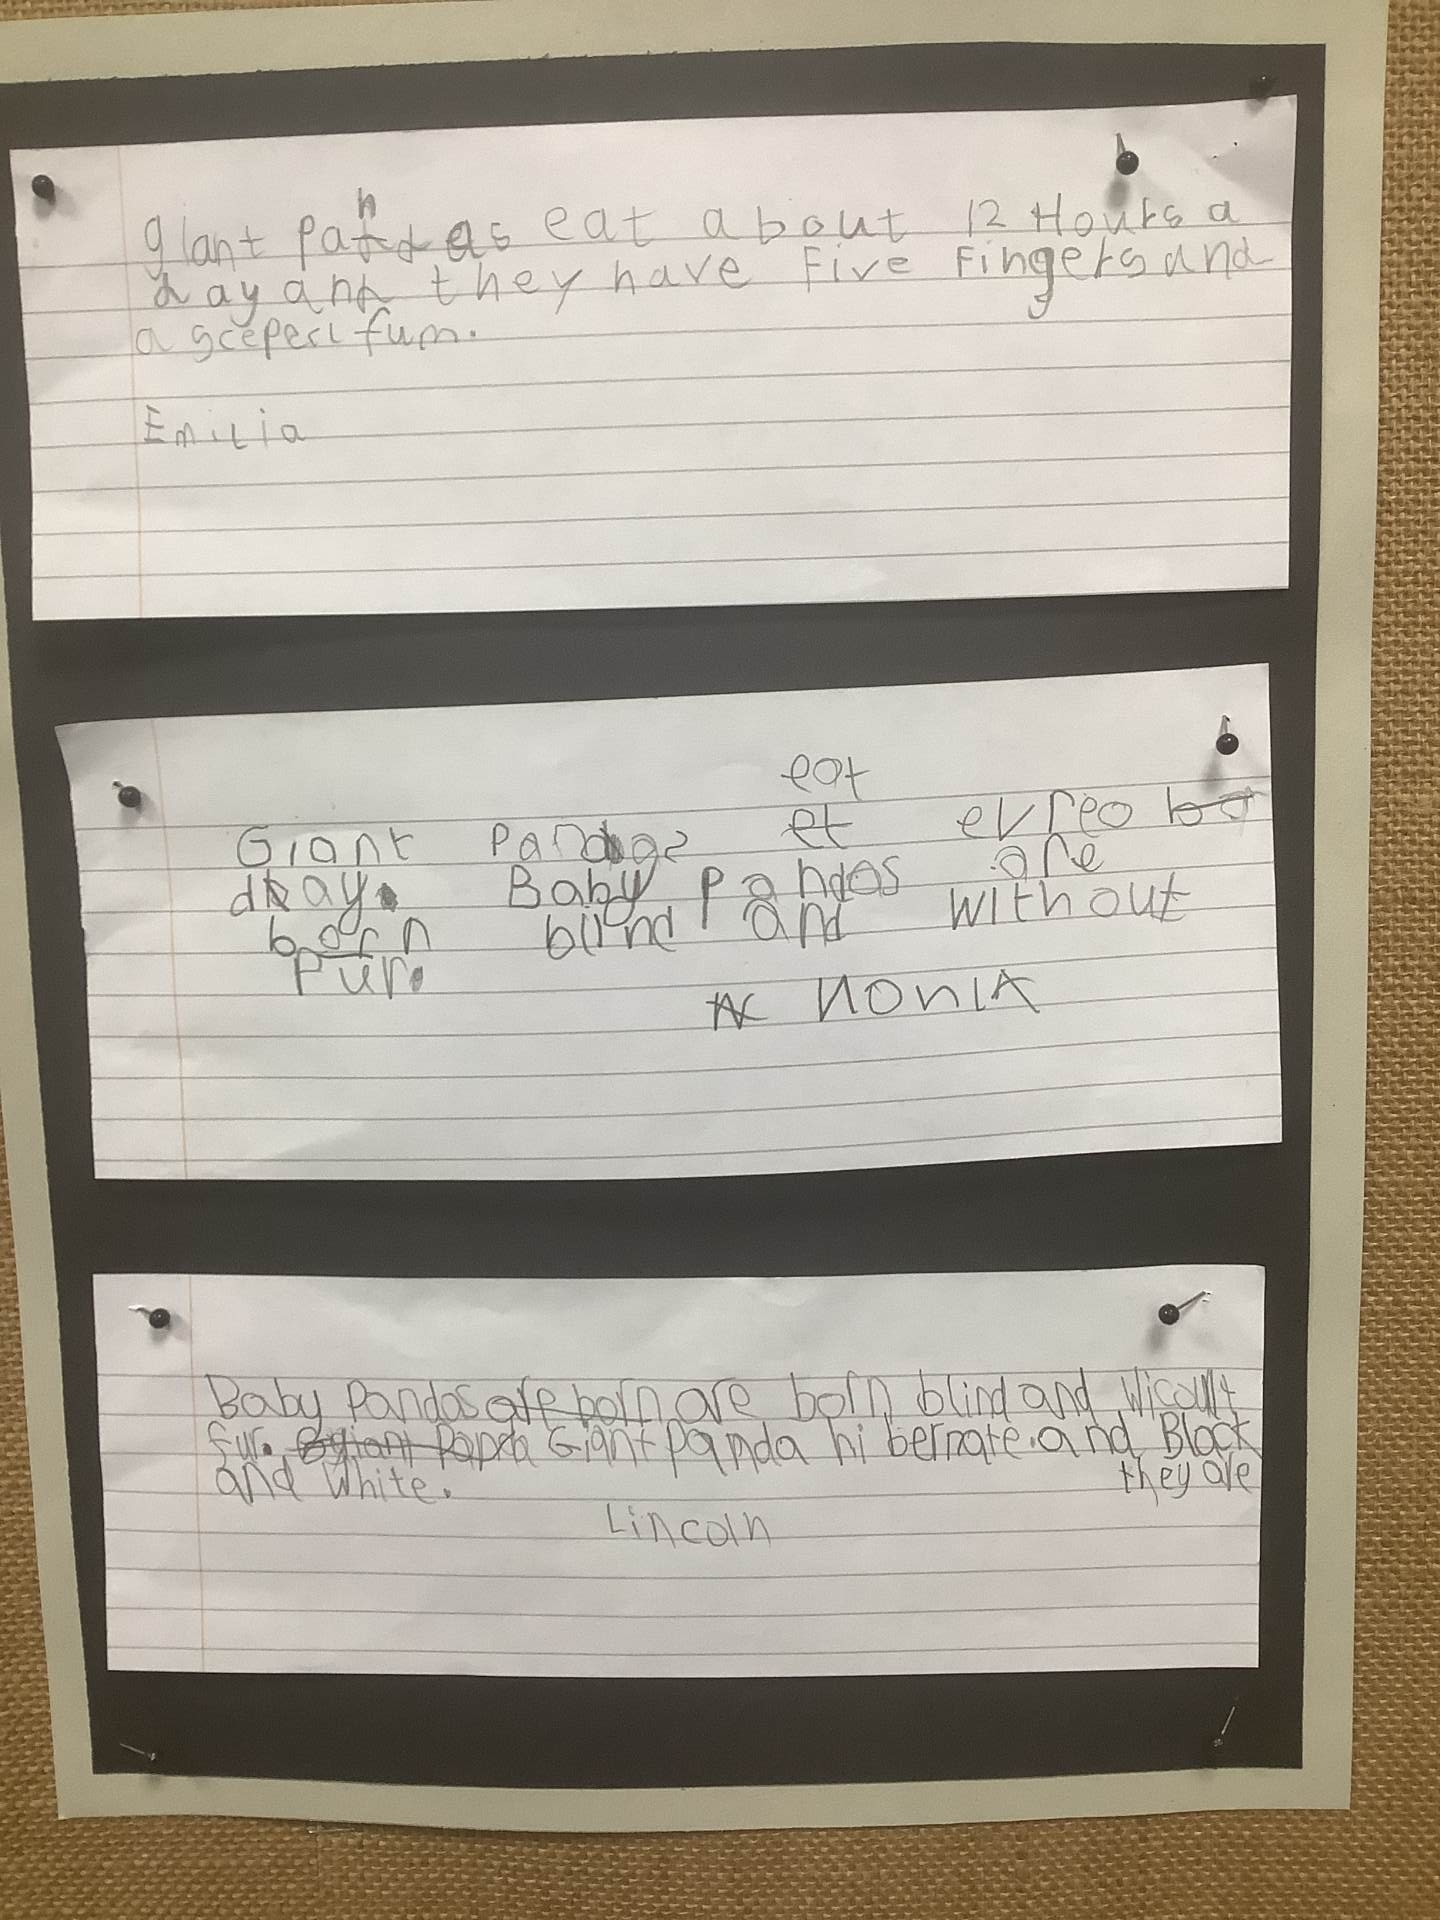 giant pandas eat about 12 Hours a
day and they have Five Fingers and
a sceperl fum.
Emilia
eat
Giant Pandas et evreo
day. Baby Pandas are
born blind and without
Pur.
NoniA
Baby Pandas are born are born blind and Wicoult
fur. giant Panda Giant Panda hi bernate. and Black
and White. they are
Lincoln